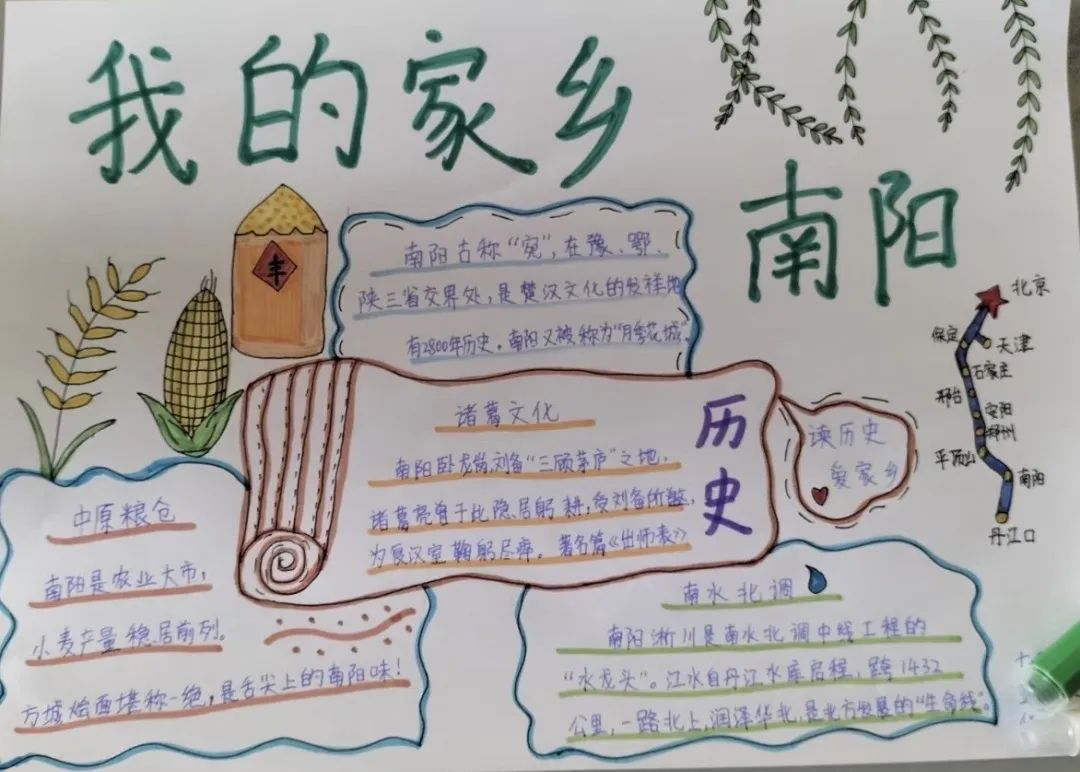 我的家乡
南阳
丰
南阳古称“宛”，在豫、鄂、
陕三省交界处，是楚汉文化的发祥地
有2800年历史。南阳又被称为“月季花城”。
历史
诸葛文化
南阳卧龙岗刘备“三顾茅庐”之地，
诸葛亮曾于此隐居躬耕，受刘备所邀，
为良汉室鞠躬尽瘁。著名篇《出师表》
读历史
爱家乡
北京
保定
天津
石家庄
邢台
安阳
郑州
平顶山
南阳
丹江口
中原粮仓
南阳是农业大市，
小麦产量稳居前列。
方城烩面堪称一绝，是舌尖上的南阳味！
南水北调
南阳淅川是南水北调中线工程的
“水龙头”。江水自丹江水库启程，跨1432
公里，一路北上，润泽华北，是北方发展的“生命线”。